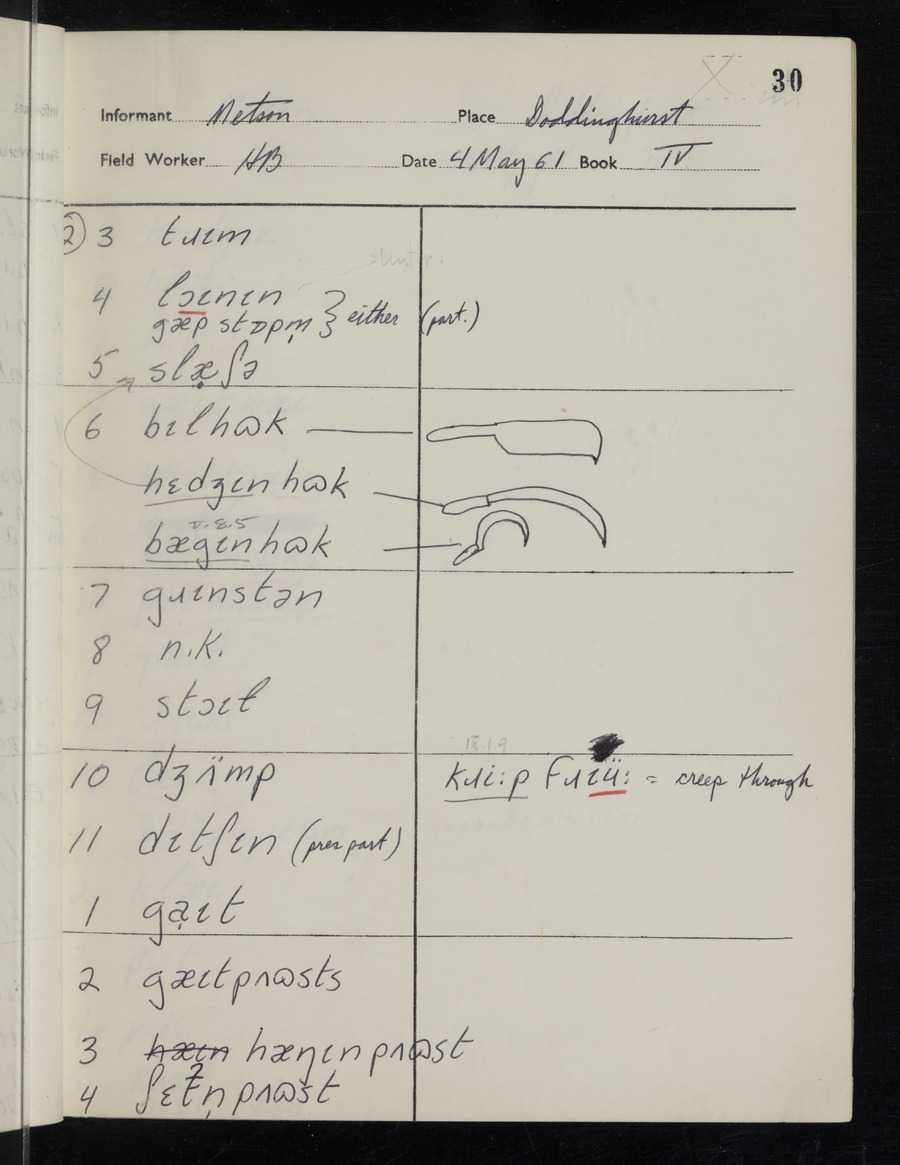 30
Informant Metson Place Doddinghurst
Field Worker HB Date 4 May 61 Book IV
② 3 tɹɪm
4 lɔɪnɪn
gæp stɒpm̩ } either (part.)
5 slæ̣ʃə
6 bɪlhɷk
hɛdʒɪn hɷk
v.8.5
bægɪnhɷk
7 gɹɪnstən
8 n.k.
9 stɔɪɫ
IX.1.9
10 dʒʌ̈mp kɹi:p fɹɪü: = creep through
11 dɪtʃɪn (pres part)
1 gạɪt
2 gæɪtpʌɷsts
3 hæɪn hæŋɪnpʌɷst
4 ʃɛʔn̩pʌɷst